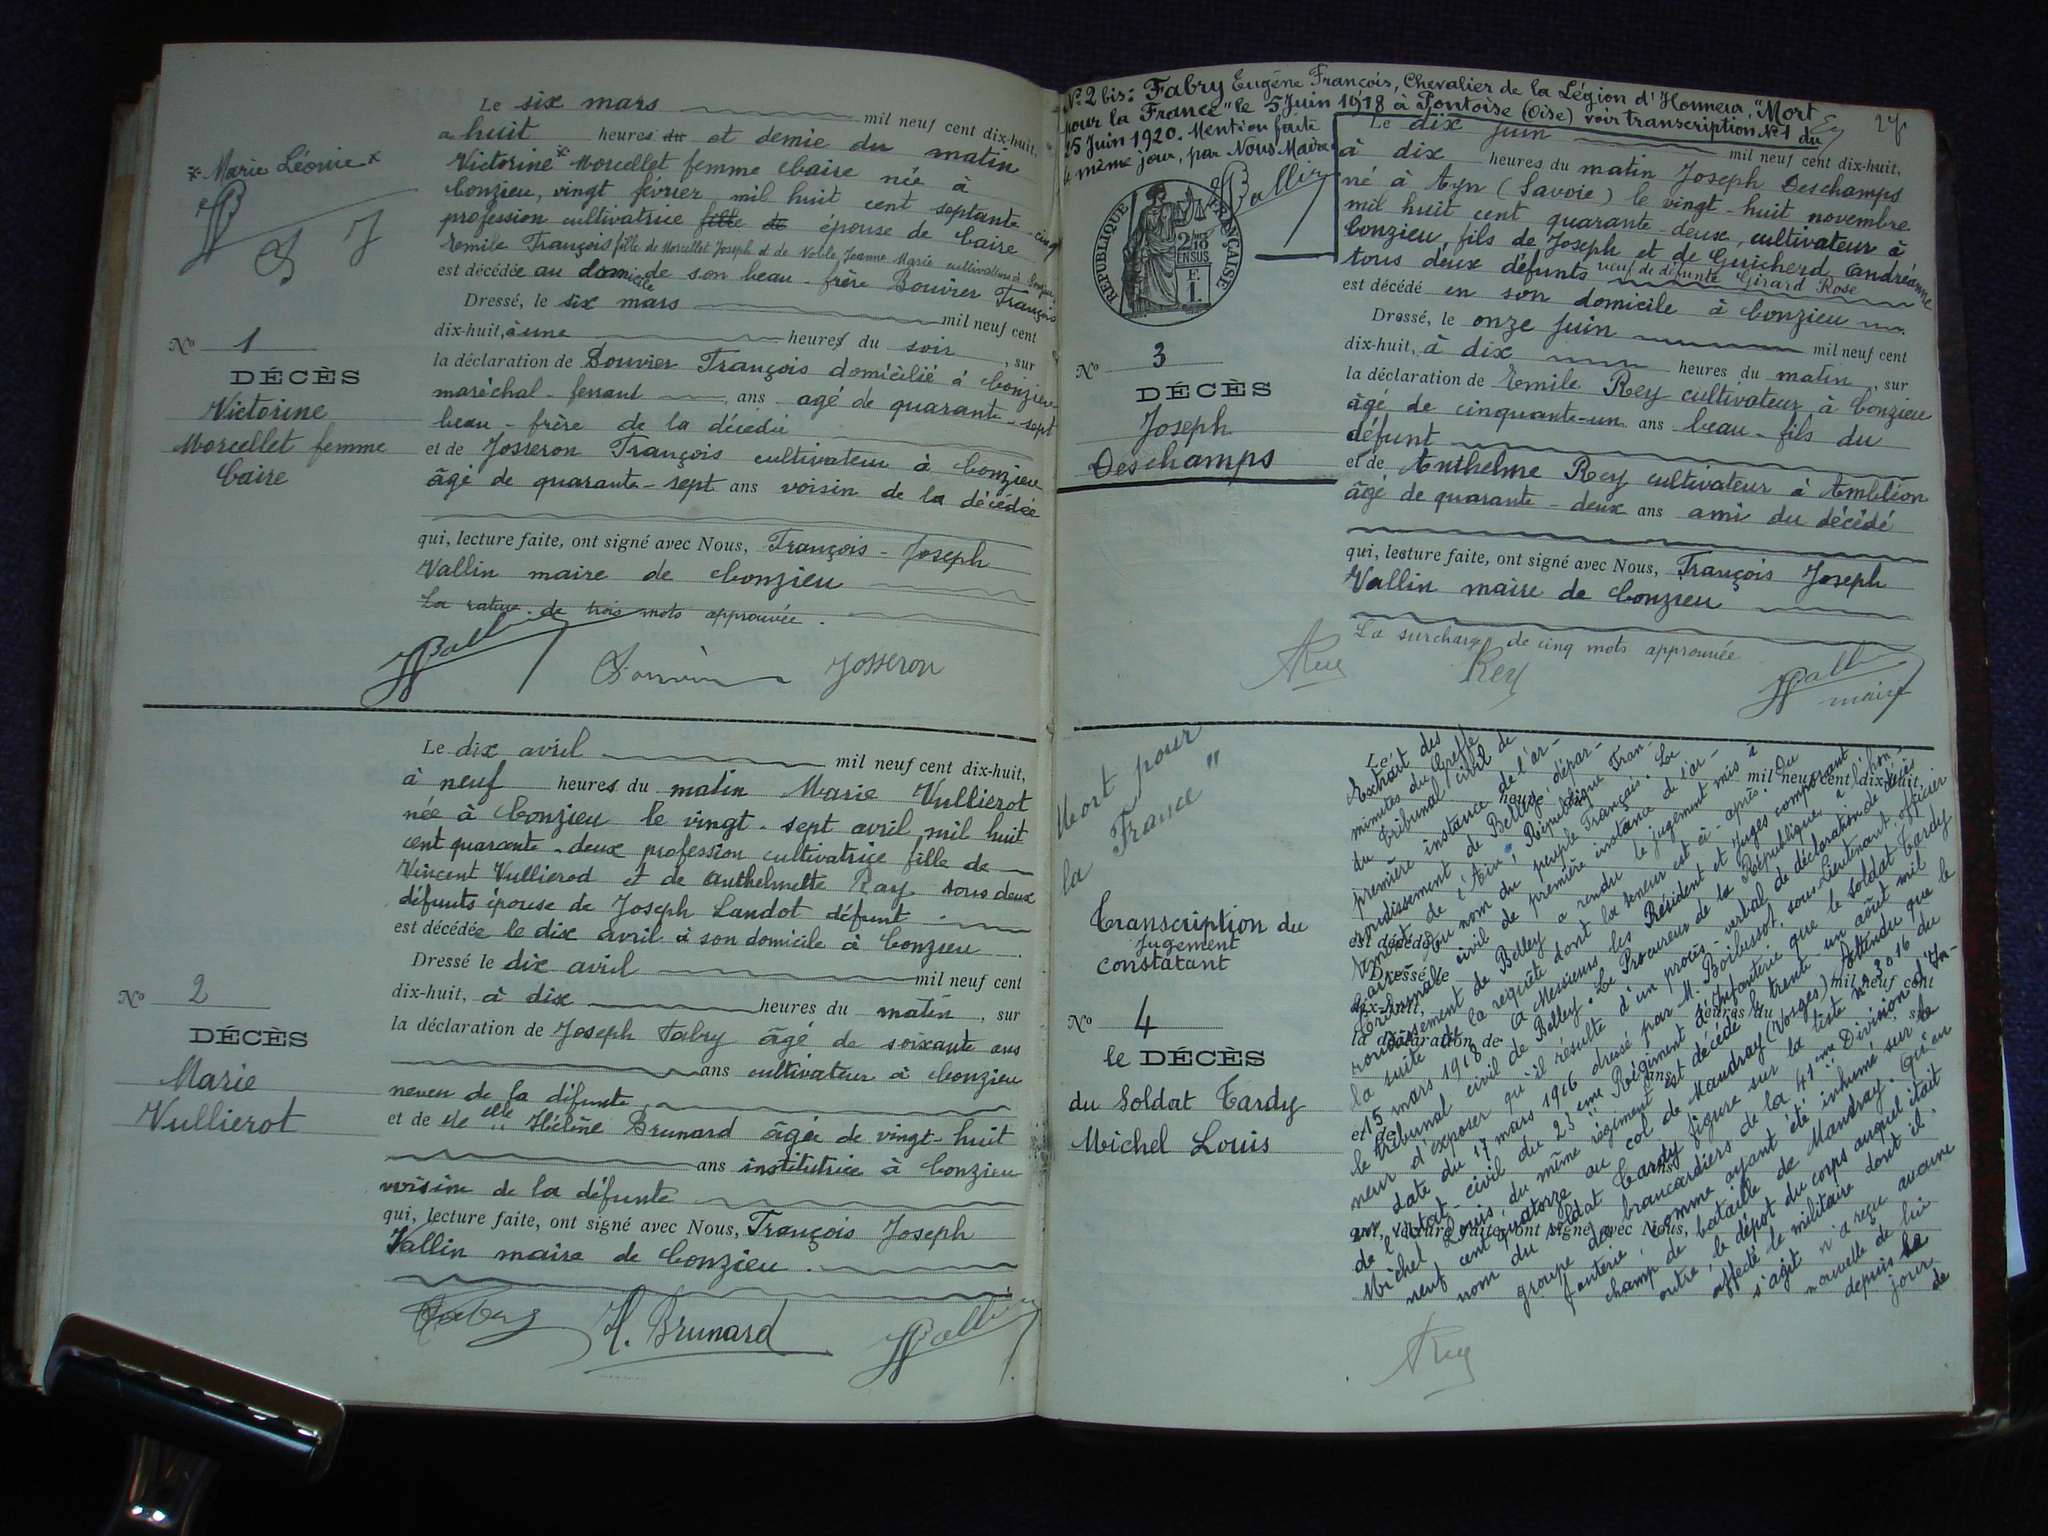 Le six mars mil neuf cent dix-huit,
a huit heures du et demie du matin
* Marie Léonie *
Victorine * Morcellet femme Caire née à
Conzieu, vingt février mil huit cent septante-cinq
profession cultivatrice fille de épouse de Caire
Emile François fille de Morcellet Joseph et de Noble Jeanne Marie cultivateurs à Conzieu
est décédée au domicile de son beau-frère Bouvier François
Dressé, le six mars mil neuf cent
dix-huit, à une heures du soir, sur
la déclaration de Bouvier François domicilié à Conzieu
maréchal-ferrant ans agé de quarante-sept
beau-frère de la décédée
et de Josseron François cultivateur à Conzieu
âgé de quarante-sept ans voisin de la décédée
qui, lecture faite, ont signé avec Nous, François-Joseph
Vallin maire de Conzieu
La rature de trois mots approuvée.
Josseron
No 1
DÉCÈS
Victorine
Morcellet femme
Caire
Le dix avril mil neuf cent dix-huit,
à neuf heures du matin Marie Vullierot
née à Conzieu le vingt-sept avril mil huit
cent quarante-deux profession cultivatrice fille de
Vincent Vullierod et de Anthelmette Ray tous deux
défunts épouse de Joseph Landot défunt
est décédée le dix avril à son domicile à Conzieu
Dressé le dix avril mil neuf cent
dix-huit, à dix heures du matin, sur
la déclaration de Joseph Fabry âgé de soixante ans
ans cultivateur à Conzieu
neveu de la défunte
et de Melle Hélène Brunard âgée de vingt-huit
ans institutrice à Conzieu
voisine de la défunte
qui, lecture faite, ont signé avec Nous, François Joseph
Vallin maire de Conzieu.
Fabry H. Brunard Vallin
No 2
DÉCÈS
Marie
Vullierot
No 2 bis: Fabry Eugène François, Chevalier de la Légion d'Honneur, "Mort
pour la France" le 5 Juin 1918 à Pontoise (Oise) voir transcription No 1 du
15 Juin 1920. Mention faite
le même jour, par Nous Maire.
Vallin
27
RÉPUBLIQUE FRANÇAISE
2/10
EN SUS
Le dix juin mil neuf cent dix-huit,
à dix heures du matin Joseph Deschamps
né à Ayn (Savoie) le vingt-huit novembre
mil huit cent quarante-deux, cultivateur à
Conzieu, fils de Joseph et de Guicherd Andréanne
tous deux défunts veuf de défunte Girard Rose
est décédé en son domicile à Conzieu
Dressé, le onze juin mil neuf cent
dix-huit, à dix heures du matin, sur
la déclaration de Emile Rey cultivateur à Conzieu
âgé de cinquante-un ans beau-fils du
défunt
et de Anthelme Rey cultivateur à Ambléon
âgé de quarante-deux ans ami du décédé
qui, lecture faite, ont signé avec Nous, François Joseph
Vallin maire de Conzieu
La surcharge de cinq mots approuvée
Rey Rey Vallin
maire
No 3
DÉCÈS
Joseph
Deschamps
Mort pour
la France "
Transcription du
jugement
constatant
No 4
le DÉCÈS
du Soldat Tardy
Michel Louis
Extrait des
minutes du Greffe
du Tribunal civil de
première instance de l'ar-
rondissement de Belley, dépar-
tement de l'Ain, République Fran-
çaise. Au nom du peuple Français. Le
tribunal civil de première instance de l'ar-
rondissement de Belley a rendu le jugement mis à
la suite de la requête dont la teneur est ci-après: Du
15 mars 1918. A Messieurs les Président et Juges composant
le tribunal civil de Belley. Le Procureur de la République à l'hon-
neur d'exposer qu'il résulte d'un procès-verbal de déclaration de décès
en date du 17 mars 1916 dressé par M. Boibessot, sous-Lieutenant officier
de l'état-civil du 23eme Régiment d'Infanterie que le soldat Tardy
Michel Louis, du même régiment est décédé le trente-un août mil
neuf cent quatorze au col de Mandray (Vosges). Attendu que le
nom du soldat Tardy figure sur la liste no 3016 du
groupe de brancardiers de la 41eme Division d'In-
fanterie, comme ayant été inhumé sur le
champ de bataille de Mandray. Qu'en
outre, le dépôt du corps auquel était
affecté le militaire dont il
s'agit n'a reçu aucune
nouvelle de lui
depuis le
jour
de
Rey